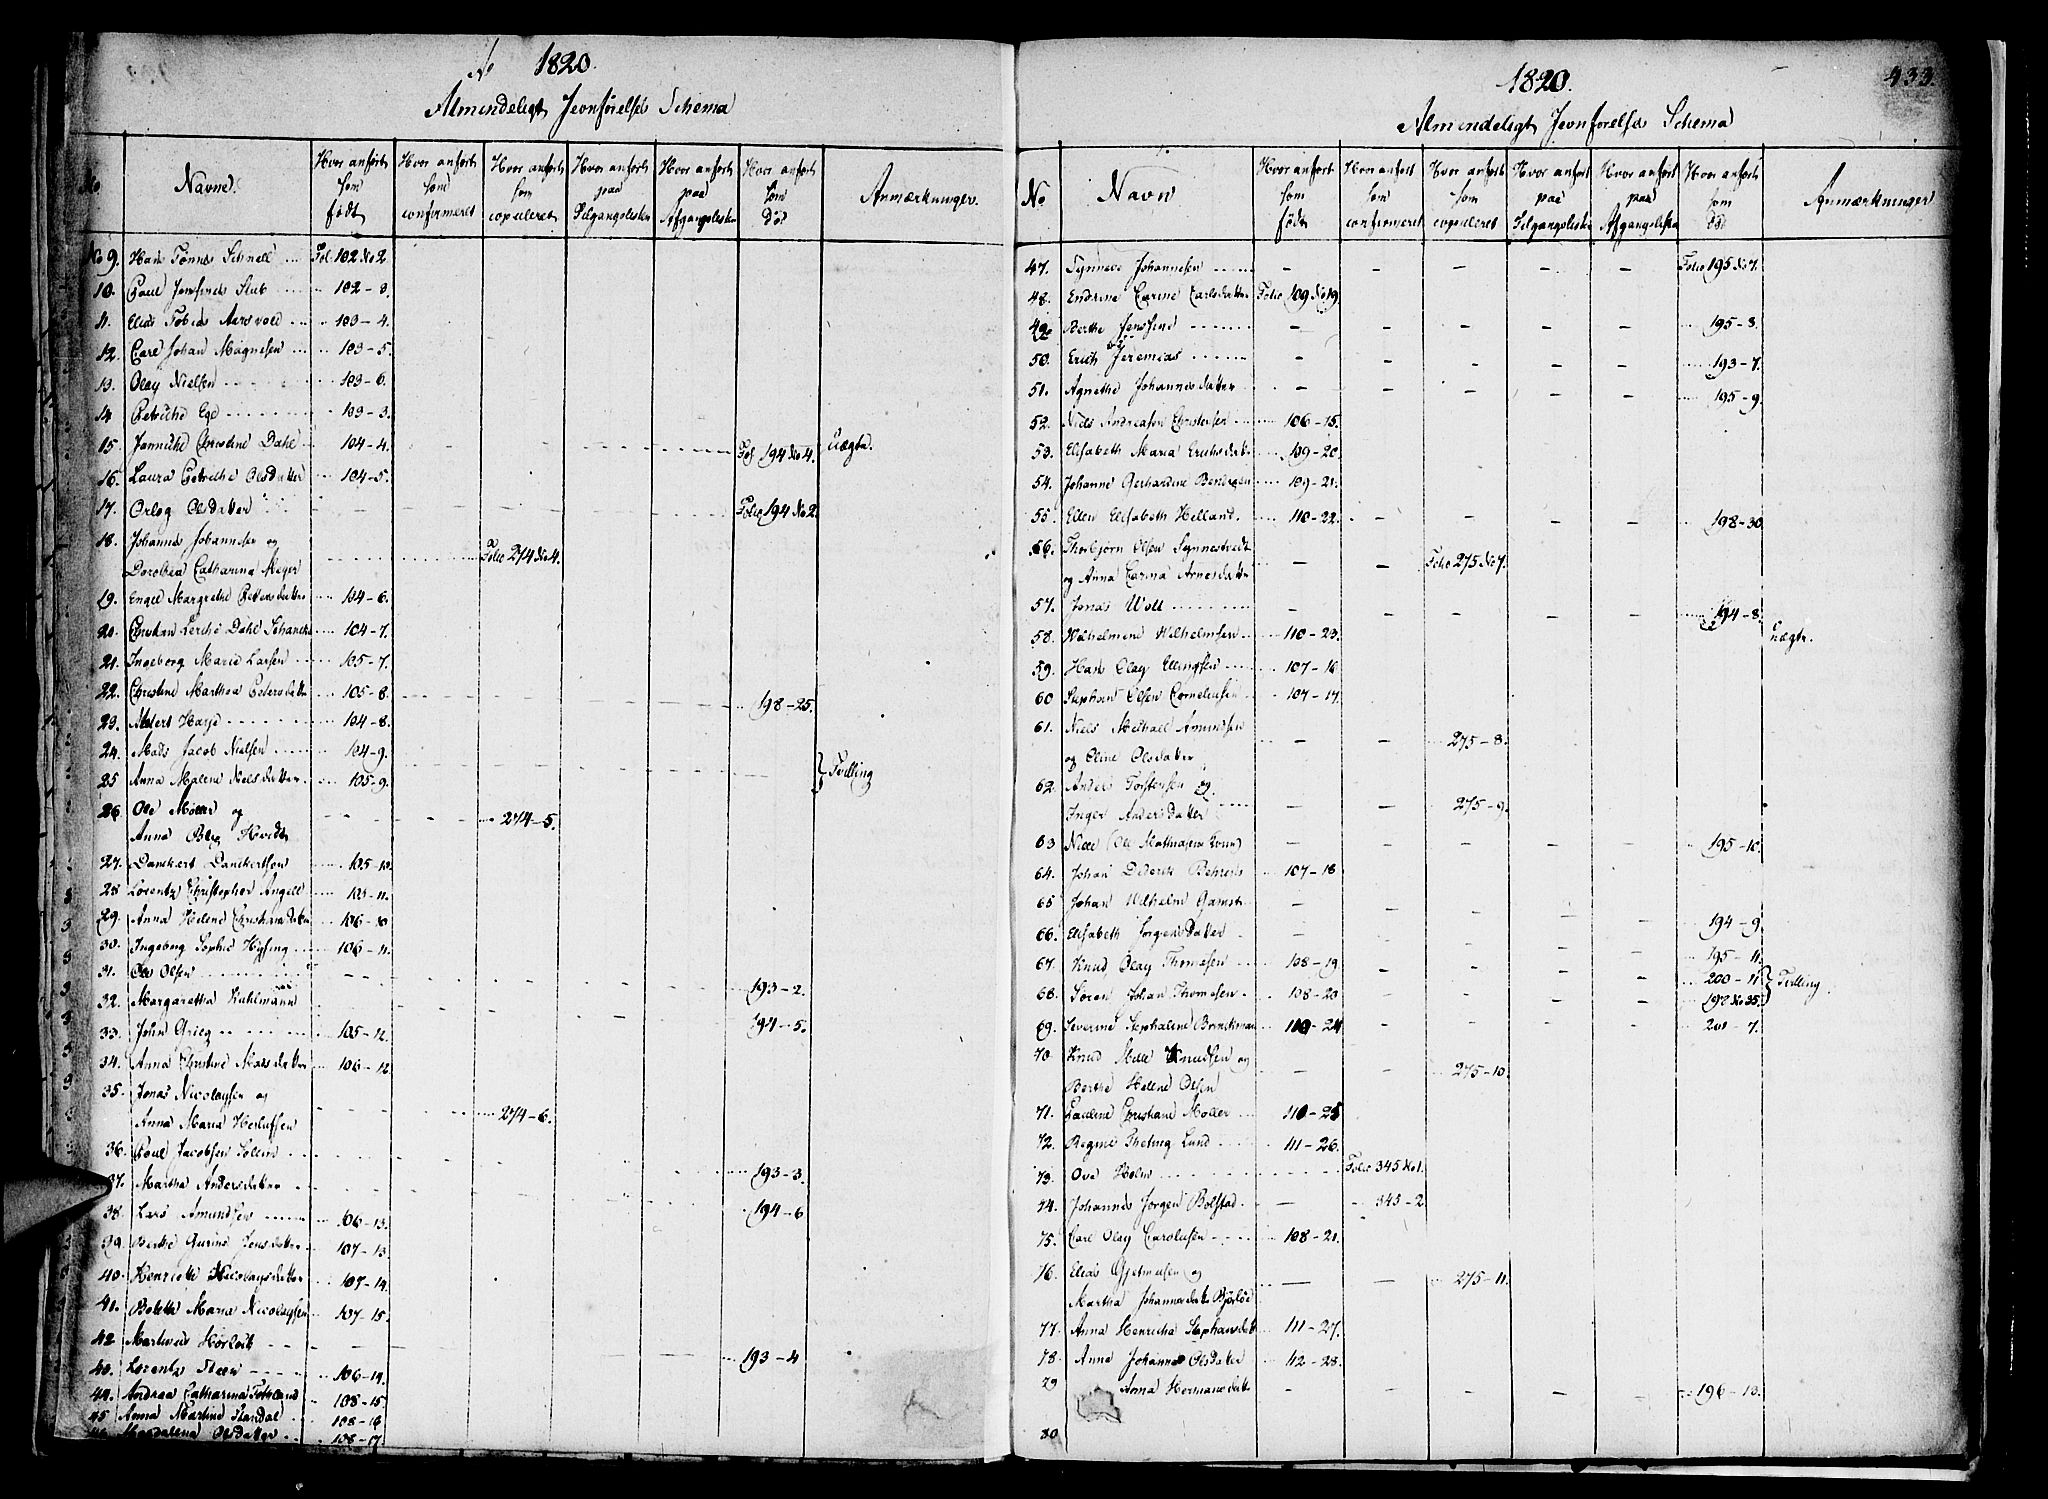 No 1820.
Almindeligt Jevnførelses Schema
No
Navne.
Hvor anført som født
Hvor anført som confirmeret
Hvor anført som copuleret
Hvor anført paa Tilgangslisten
Hvor anført paa Afgangslisten
Hvor anført som død
Anmærkninger.
No 9. Hans Tønnes Schnell Fol. 102 No 2.
10. Poul Jonsines Slub 102 - 3.
11. Elias Tobias Aarsvold 103 - 4.
12. Carl Johan Magnesen 103 - 5.
13. Olay Nielsen 103 - 6.
14 Petriche Ege 103 - 3.
15. Jannicke Christine Dahl 104 - 4. Fol 194 No 4. uægte.
16. Laura Petriche Olsdatter 104 - 5.
17. Orleg Olsdatter Folio 194 No 2.
18. Johannes Johannesen og
Dorothea Catharina Meyer Folio 274 No 4.
19. Engel Margrethe Petersdatter 104 - 6.
20. Christian Lerche Dahl Schancke 104 - 7.
21. Ingeborg Marie Larsen 105 - 7.
22. Christine Marthea Petersdatter 105 - 8. 198 - 25.
23. Albert Harje 104 - 8.
24. Mads Jacob Nielsen 104 - 9.
25 Anna Malene Nielsdatter 105 - 9. } Tvilling
26. Ole Møller og
Anna Berg Hvidt 274 - 5.
27. Danckert Danckertsen 105 - 10.
28 Lorentz Christopher Angell 105 - 11.
29. Anna Helene Christiansdatter 106 - 10
30. Ingeborg Sophie Hysing 106 - 11.
31. Ole Olsen 193 - 2.
32. Margaretha Kuhlmann 194 - 5.
33. John Grieg 105 - 12.
34. Anna Christine Nielsdatter 106 - 12
35. Jonas Nicolaysen og
Anna Maria Herlufsen 274 - 6.
36. Poul Jacobsen Solem 193 - 3.
37. Martha Andersdatter 194 - 6
38. Lars Amundsen 106 - 13.
39. Berthe Gurine Jensdatter 107 - 13.
40. Henriette Nicolaysdatter 107 - 14.
41. Bolette Marie Nicolaysen 107 - 15.
42 Martinus Hørlock 193 - 4
43. Lorentz Steen 106 - 14.
44. Andrea Catharina Totland 108 - 15
45 Anna Martine Standal 108 - 16
46. Magdalena Olsdatter 108 - 17.
1820. 433
Almindeligt Jevnførelses Schema
No
Navn
Hvor anført som født
Hvor anført som confirmeret
Hvor anført som copuleret
Hvor anført paa Tilgangsliste
Hvor anført paa Afgangsliste
Hvor anført som død
Anmærkninger
47. Synneve Johannesen Folio 195 No 7.
48. Endrine Carine Carlsdatter Folio 109 No 19
49. Berthe Jensine 195 - 8.
50. Erich Jeremias 193 - 7.
51. Agnethe Johannesdatter 195 - 9.
52. Niels Andreasen Christensen 106 - 15.
53. Elisabeth Maria Erichsdatter 109 - 20.
54. Johanne Gerhardine Bendixen 109 - 21.
55. Ellen Elisabeth Helland. 110 - 22. 198 - 30.
56. Thorbjørn Olsen Synnestvedt
og Anna Carina Arnesdatter Folio 275 No 7.
57. Jonas Woll 194 - 8.
58. Wilhelmine Wilhelmsen 110 - 23. uægte.
59. Hans Olay Ellingsen 107 - 16
60 Stephan Olsen Corneliusen 107 - 17.
61. Niels Michael Amundsen
og Oline Olsdatter 275 - 8.
62. Anders Torstensen og
Inger Andersdatter 275 - 9.
63 Nille (Ole Mathiasens Kone) 195 - 10.
64. Johan Diderik Behrens 107 - 18
65 Johan Wilhelm Gamst 194 - 9.
66. Elisabeth Jørgensdatter 195 - 11.
67. Knud Olay Thomesen 108 - 19 200 - 11
68. Søren Johan Thomesen 108 - 20 192 No 35. } Tvilling
69. Severine Stephaline Brinckman 110 - 24 201 - 7.
70. Knud Melle Knudsen og
Berthe Helene Olsen 275 - 10.
71. Pauline Christiane Møller 110 - 25
72. Regine Theting Lund 111 - 26.
73. Ove Holm Folio 345 No 1.
74. Johannes Jørgen Bolstad 345 - 2
75. Carl Olay Carolusen 108 - 21.
76. Elias Gjetmesen og
Martha Johannesdatter Bjerløe 275 - 11.
77. Anna Henricha Stephansdatter 111 - 27.
78. Anne Johanne Olsdatter 112 - 28.
79 Anna Hermansdatter 196 - 13.
80